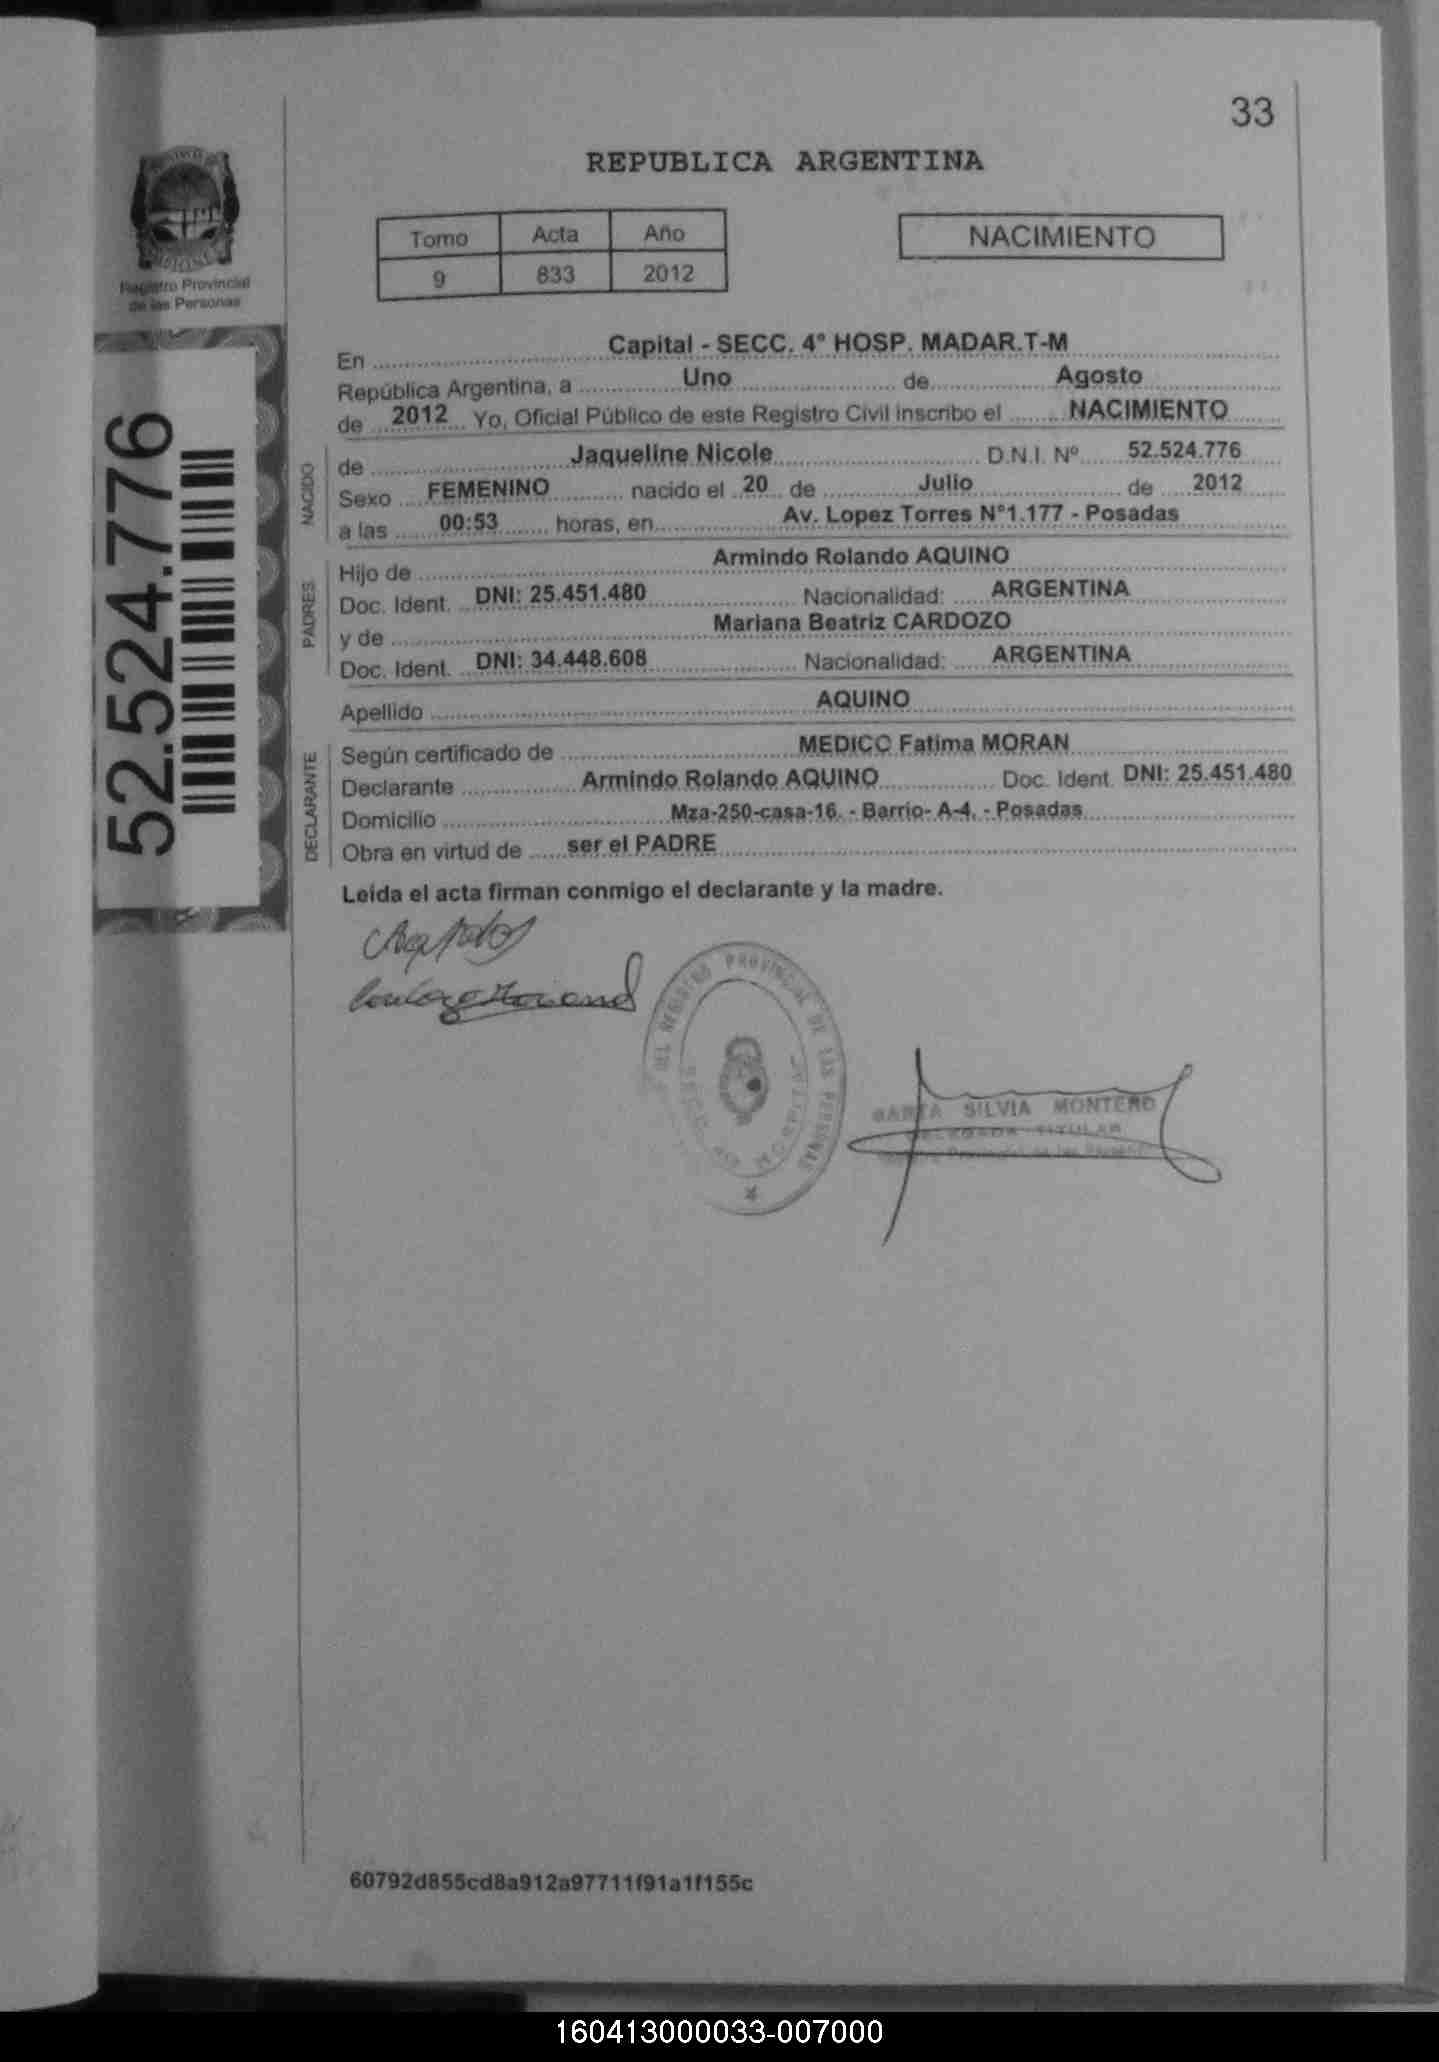 33
REPUBLICA ARGENTINA
Registro Provincial
de las Personas
Tomo Acta Año
9 833 2012
NACIMIENTO
52.524.776
En Capital - SECC. 4° HOSP. MADAR.T-M
República Argentina, a Uno de Agosto
de 2012 Yo, Oficial Público de este Registro Civil inscribo el NACIMIENTO
NACIDO
de Jaqueline Nicole D.N.I. Nº 52.524.776
Sexo FEMENINO nacido el 20 de Julio de 2012
a las 00:53 horas, en Av. Lopez Torres N°1.177 - Posadas
PADRES
Hijo de Armindo Rolando AQUINO
Doc. Ident. DNI: 25.451.480 Nacionalidad: ARGENTINA
y de Mariana Beatriz CARDOZO
Doc. Ident. DNI: 34.448.608 Nacionalidad: ARGENTINA
Apellido AQUINO
DECLARANTE
Según certificado de MEDICO Fatima MORAN
Declarante Armindo Rolando AQUINO Doc. Ident. DNI: 25.451.480
Domicilio Mza-250-casa-16. - Barrio- A-4. - Posadas
Obra en virtud de ser el PADRE
Leída el acta firman conmigo el declarante y la madre.
DEL REGISTRO PROVINCIAL DE LAS PERSONAS
SILVIA MONTERO
DELEGADA TITULAR
60792d855cd8a912a97711f91a1f155c
160413000033-007000